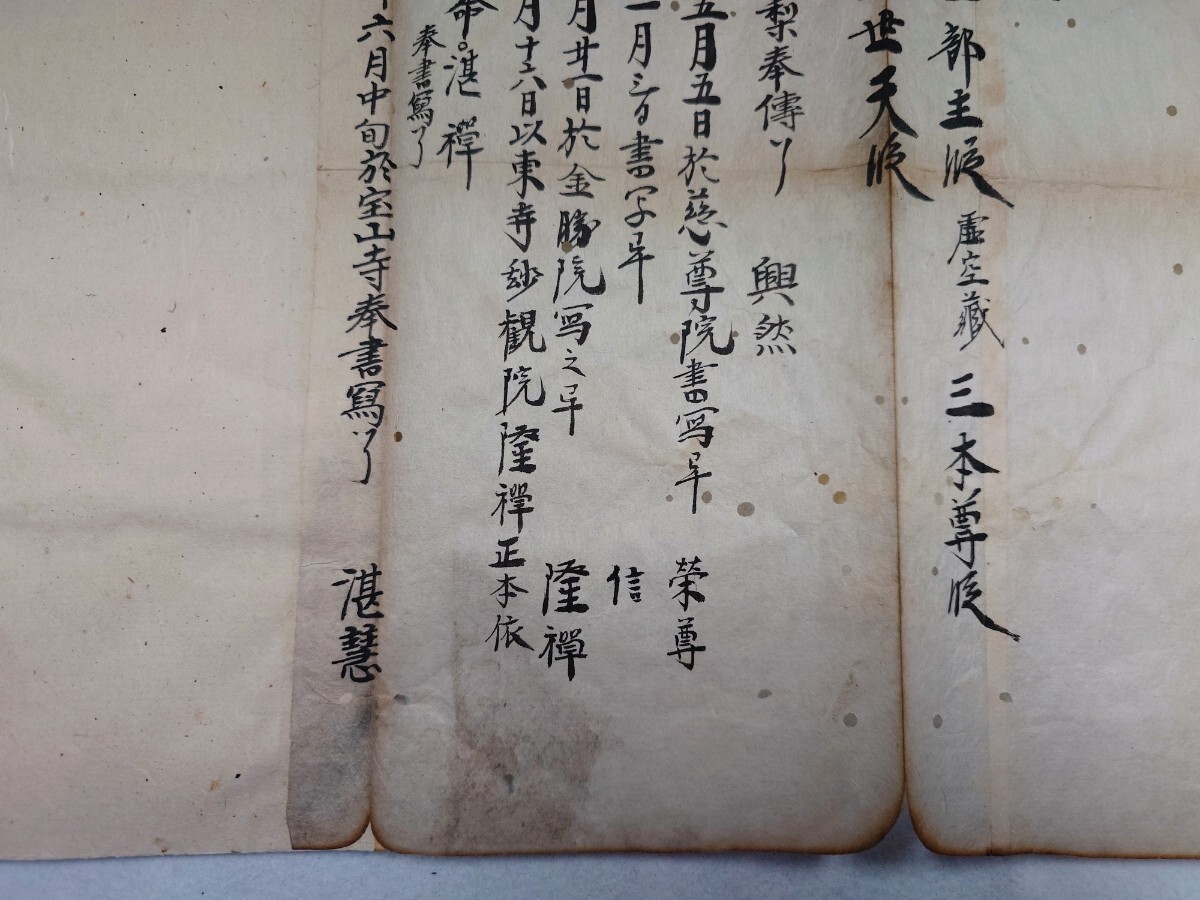 部主段 虚空藏 三本尊段
世天段
梨奉傳了 興然
五月五日於慈尊院書写畢 榮尊
一月三日書写畢 信
月廿一日於金勝院写之畢 隆禪
月十六日以東寺妙觀院隆禪正本依
命。湛禪
奉書寫了
六月中旬於宝山寺奉書寫了 湛慧